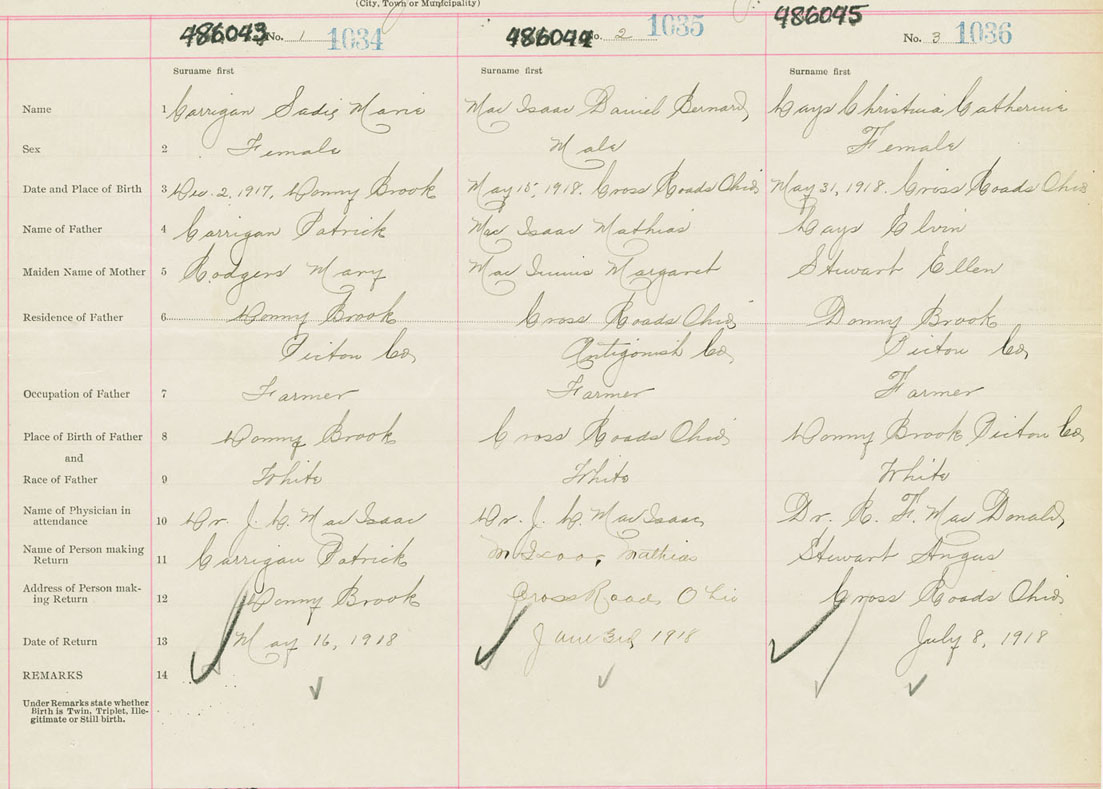 (City, Town or Municipality)
486043 No. 1 1034 486044 No. 2 1035 486045 No. 3 1036
Surname first Surname first Surname first
Name 1 Carrigan Sadie Marie Mac Isaac Daniel Bernard Hays Christina Catherine
Sex 2 Female Male Female
Date and Place of Birth 3 Dec. 2, 1917, Donny Brook May 15, 1918. Cross Roads Ohio May 31, 1918. Cross Roads Ohio
Name of Father 4 Carrigan Patrick Mac Isaac Mathias Hays Elvin
Maiden Name of Mother 5 Rodgers Mary Mac Innis Margaret Stewart Ellen
Residence of Father 6 Donny Brook Cross Roads Ohio Donny Brook
Pictou Co, Antigonish Co, Pictou Co,
Occupation of Father 7 Farmer Farmer Farmer
Place of Birth of Father 8 Donny Brook Cross Roads Ohio Donny Brook Pictou Co,
and
Race of Father 9 White White White
Name of Physician in
attendance 10 Dr. J. L. Mac Isaac Dr. J. L. Mac Isaac, Dr. R. F. Mac Donald,
Name of Person making
Return 11 Carrigan Patrick McIsaac, Mathias Stewart Angus
Address of Person mak-
ing Return 12 Donny Brook Cross Roads Ohio Cross Roads Ohio
Date of Return 13 May 16, 1918 June 3rd, 1918 July 8, 1918
REMARKS 14
Under Remarks state whether
Birth is Twin, Triplet, Ille-
gitimate or Still birth.